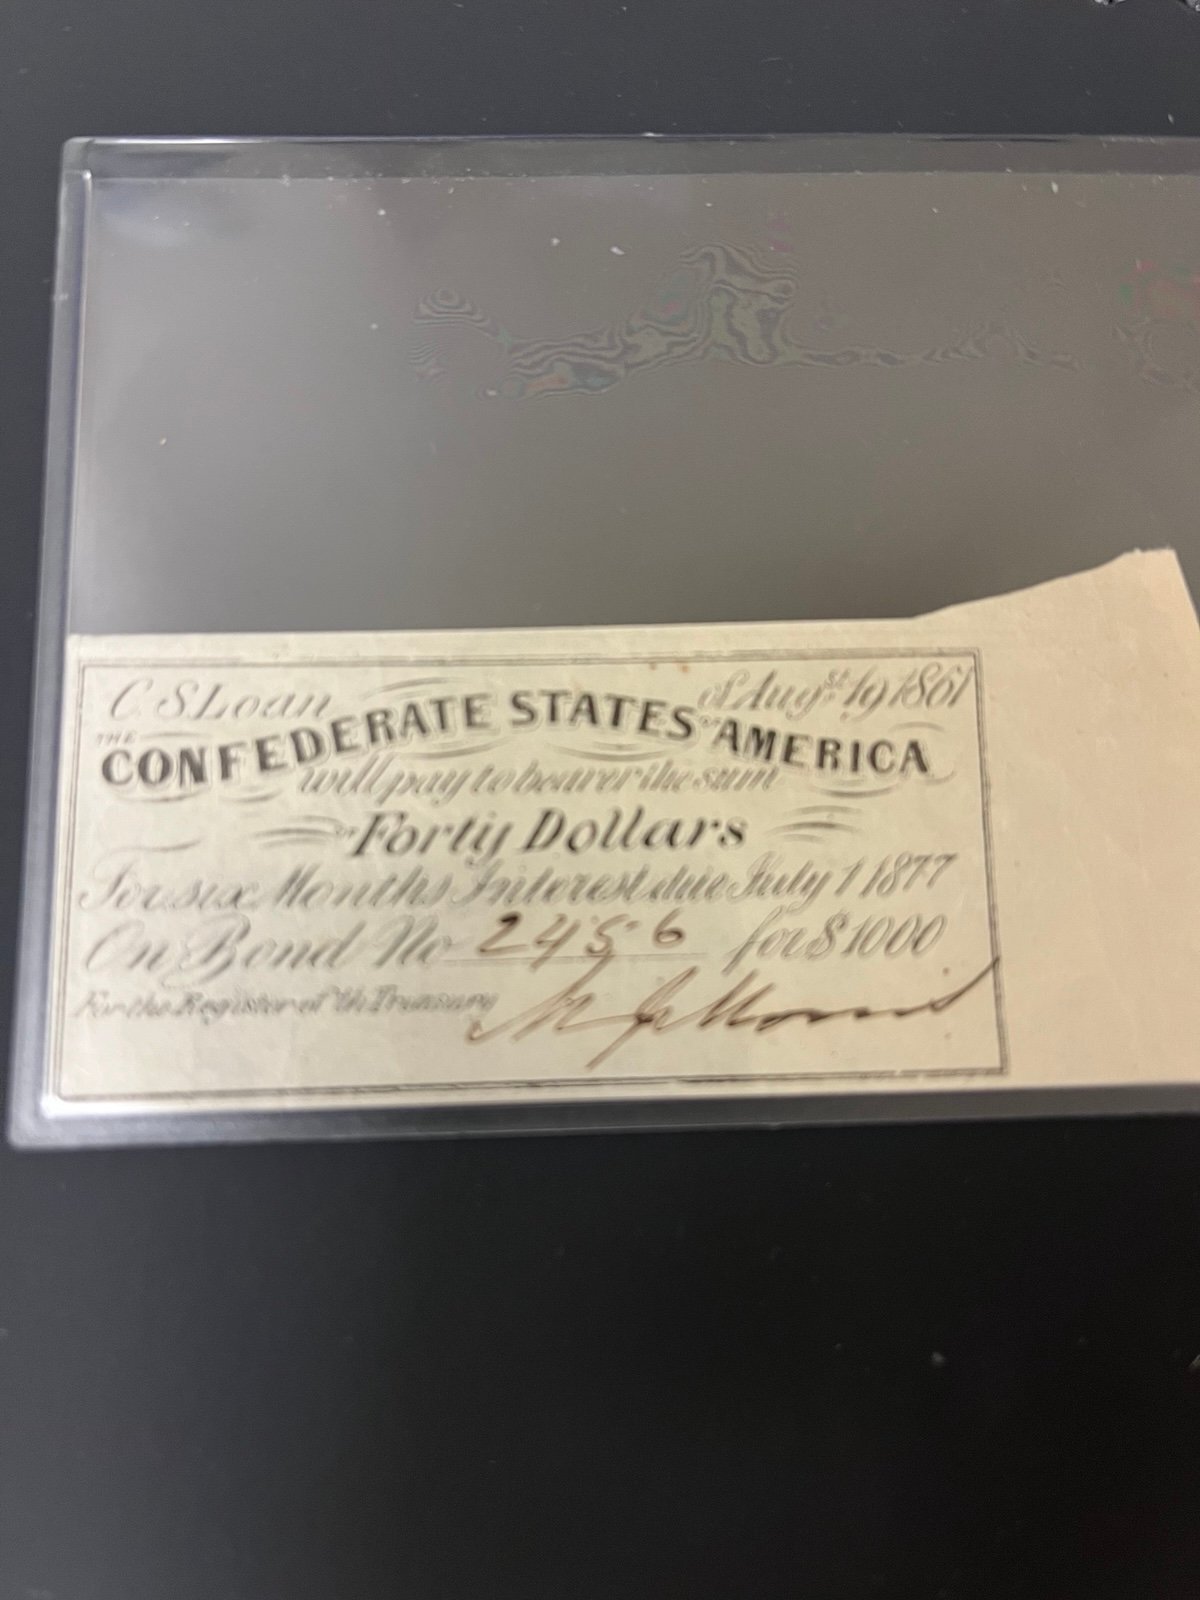 C. S. Loan of Augst 19 1861
THE
CONFEDERATE STATES OF AMERICA
will pay to bearer the sum
OF Forty Dollars
For six Months Interest due July 1 1877
On Bond No 2456 for $1000
For the Register of th Treasury